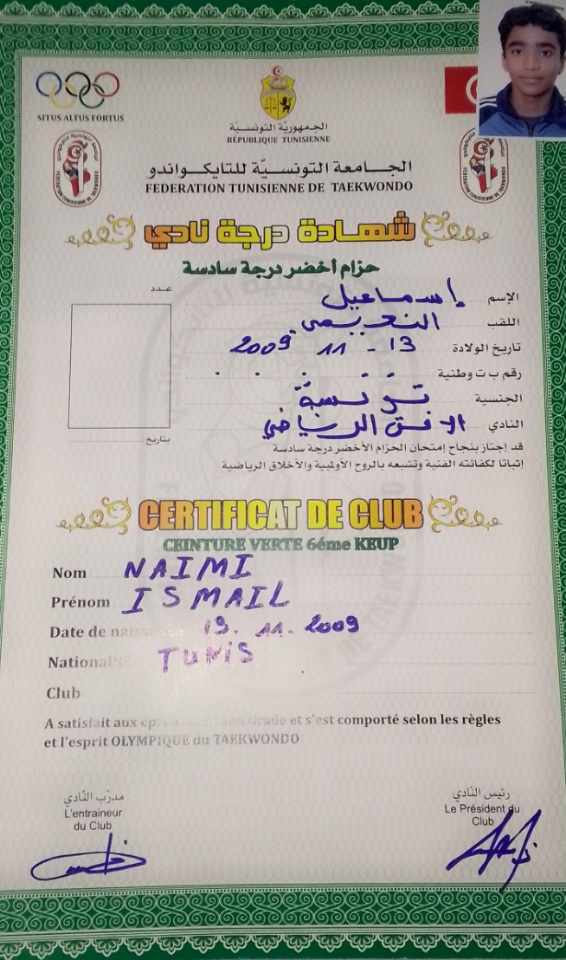 SITUS ALTUS FORTUS
الجمهورية التونسية
RÉPUBLIQUE TUNISIENNE
الجامعة التونسية للتايكواندو
FEDERATION TUNISIENNE DE TAEKWONDO
شهادة درجة نادي
حزام أخضر درجة سادسة
عدد
الإسم إسماعيل
اللقب النعيمي
تاريخ الولادة 13 - 11 2009
رقم ب ت وطنية
الجنسية تونسية
النادي الافق الرياضي
بتاريخ
قد إجتاز بنجاح إمتحان الحزام الأخضر درجة سادسة
إثباتا لكفائته الفنية وتشبعه بالروح الأولمبية والأخلاق الرياضية
CERTIFICAT DE CLUB
CEINTURE VERTE 6éme KEUP
Nom NAIMI
Prénom ISMAIL
Date de 13.11.2009
National TUNIS
Club
A satisfait aux et s'est comporté selon les règles
et l'esprit OLYMPIQUE du TAEKWONDO
مدرب النادي
L'entraineur
du Club
رئيس النادي
Le Président du
Club